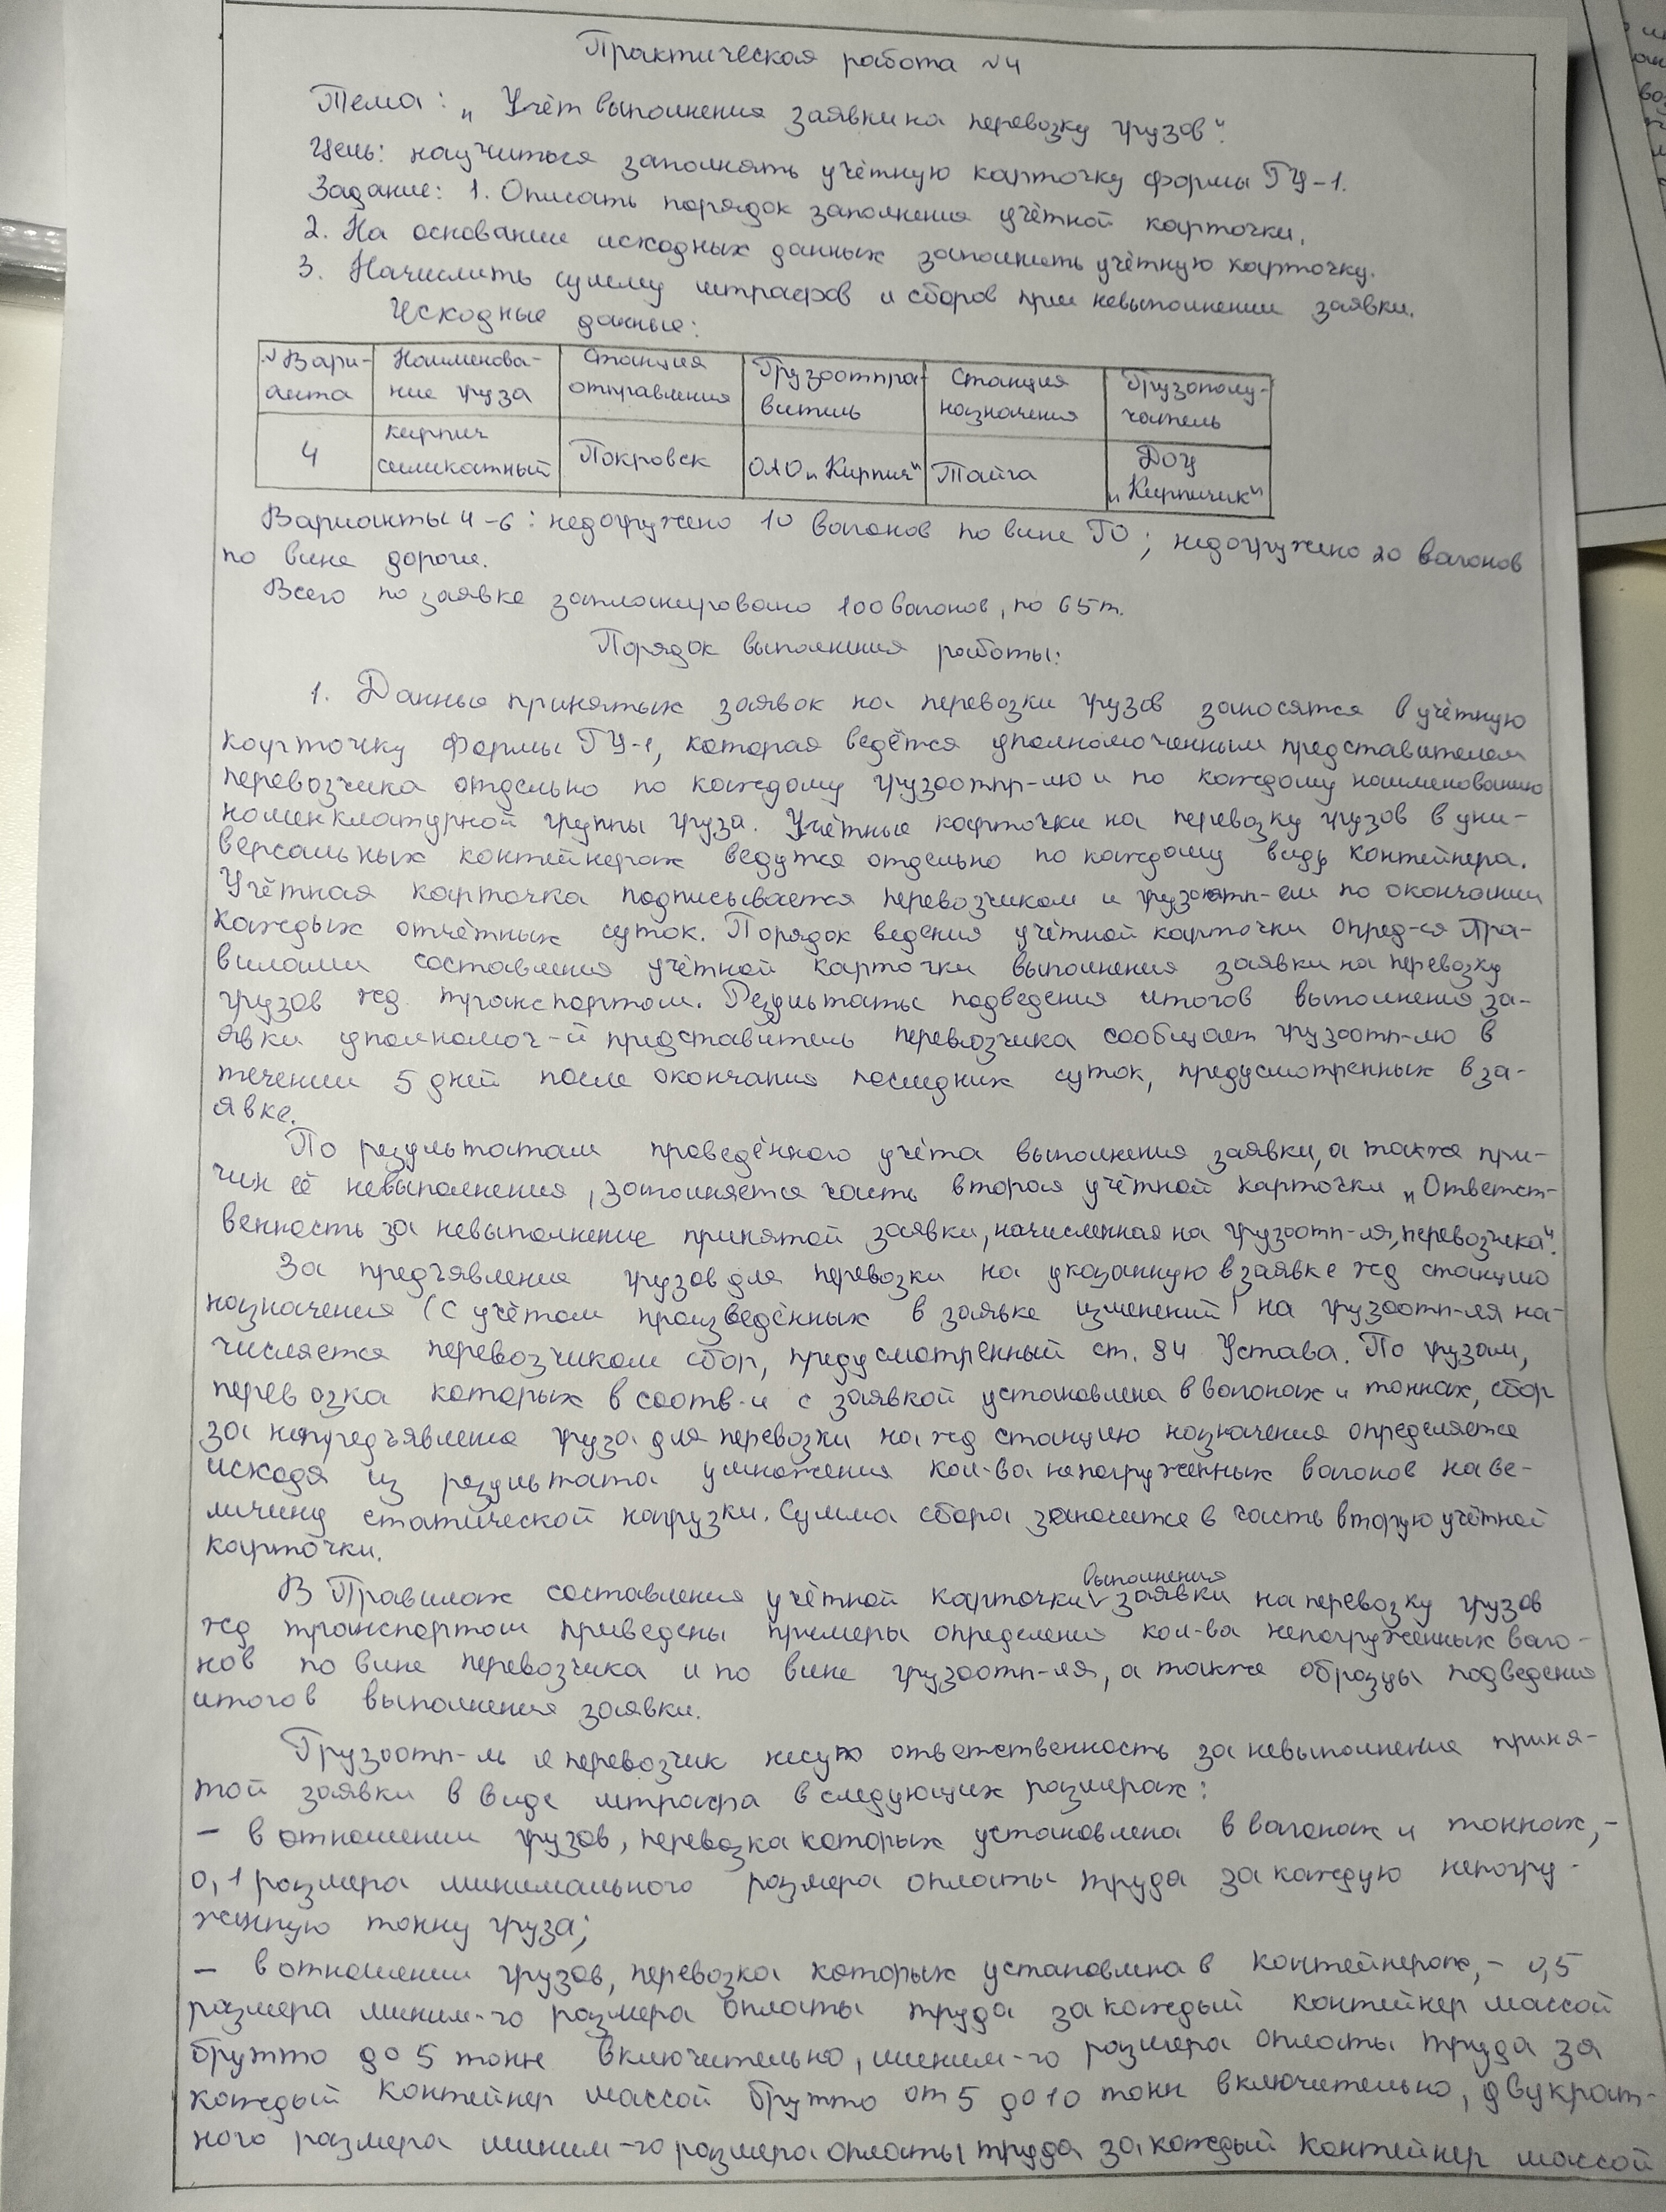 Практическая работа №4
Тема: „Учёт выполнения заявки на перевозку грузов".
Цель: научиться заполнять учётную карточку формы ГУ-1.
Задание: 1. Описать порядок заполнения учётной карточки.
2. На основании исходных данных заполнить учётную карточку.
3. Начислить сумму штрафов и сборов при невыполнении заявки.
Исходные данные:
№Вари-
анта
Наименова-
ние груза
Станция
отправления
Грузоотпра-
витель
Станция
назначения
Грузополу-
чатель
4
кирпич
силикатный
Покровск
ОАО „Кирпич"
Тайга
ДОУ
„Кирпичик"
Варианты 4-6: недогружено 10 вагонов по вине ГО; недогружено 20 вагонов
по вине дороги.
Всего по заявке запланировано 100 вагонов, по 65т.
Порядок выполнения работы:
1. Данные принятых заявок на перевозки грузов заносятся в учётную
карточку формы ГУ-1, которая ведётся уполномоченным представителем
перевозчика отдельно по каждому грузоотпр-лю и по каждому наименованию
номенклатурной группы груза. Учётные карточки на перевозку грузов в уни-
версальных контейнерах ведутся отдельно по каждому виду контейнера.
Учётная карточка подписывается перевозчиком и грузоотп-ем по окончании
каждых отчётных суток. Порядок ведения учётной карточки опред-ся Пра-
вилами составления учётной карточки выполнения заявки на перевозку
грузов жд. транспортом. Результаты подведения итогов выполнения за-
явки уполномоч-й представитель перевозчика сообщает грузоотп-лю в
течении 5 дней после окончания последних суток, предусмотренных в за-
явке.
По результатам проведённого учёта выполнения заявки, а также при-
чин её невыполнения, заполняется часть вторая учётной карточки „Ответст-
венность за невыполнение принятой заявки, начисленная на грузоотп-ля, перевозчика".
За предъявление грузов для перевозки на указанную в заявке жд станцию
назначения (с учётом произведённых в заявке изменений) на грузоотп-ля на-
числяется перевозчиком сбор, предусмотренный ст. 94 Устава. По грузам,
перевозка которых в соотв-и с заявкой установлена в вагонах и тоннах, сбор
за непредъявление груза для перевозки на жд станцию назначения определяется
исходя из результата умножения кол-ва непогруженных вагонов на ве-
личину статической нагрузки. Сумма сбора заносится в часть вторую учётной
карточки.
В Правилах составления учётной карточки выполнения заявки на перевозку грузов
жд транспортом приведены примеры определения кол-ва непогруженных ваго-
нов по вине перевозчика и по вине грузоотп-ля, а также образцы подведения
итогов выполнения заявки.
Грузоотп-ль и перевозчик несут ответственность за невыполнение приня-
той заявки в виде штрафа в следующих размерах:
– в отношении грузов, перевозка которых установлена в вагонах и тоннах, –
0,1 размера минимального размера оплаты труда за каждую непогру-
женную тонну груза;
– в отношении грузов, перевозка которых установлена в контейнерах, – 0,5
размера миним-го размера оплаты труда за каждый контейнер массой
брутто до 5 тонн включительно, миним-го размера оплаты труда за
каждый контейнер массой брутто от 5 до 10 тонн включительно, двукрат-
ного размера миним-го размера оплаты труда за каждый контейнер массой